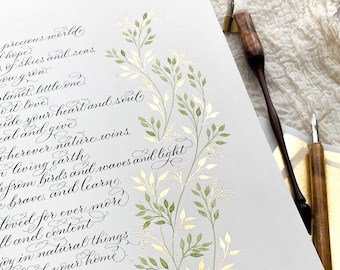 precious world
hope
of skies and seas
you grow
planet, little one
it love
your heart and soul
and give
wherever nature wins
living earth
from birds and waves and light
brave, and learn
loved for ever more
and content
joy in natural things,
your home